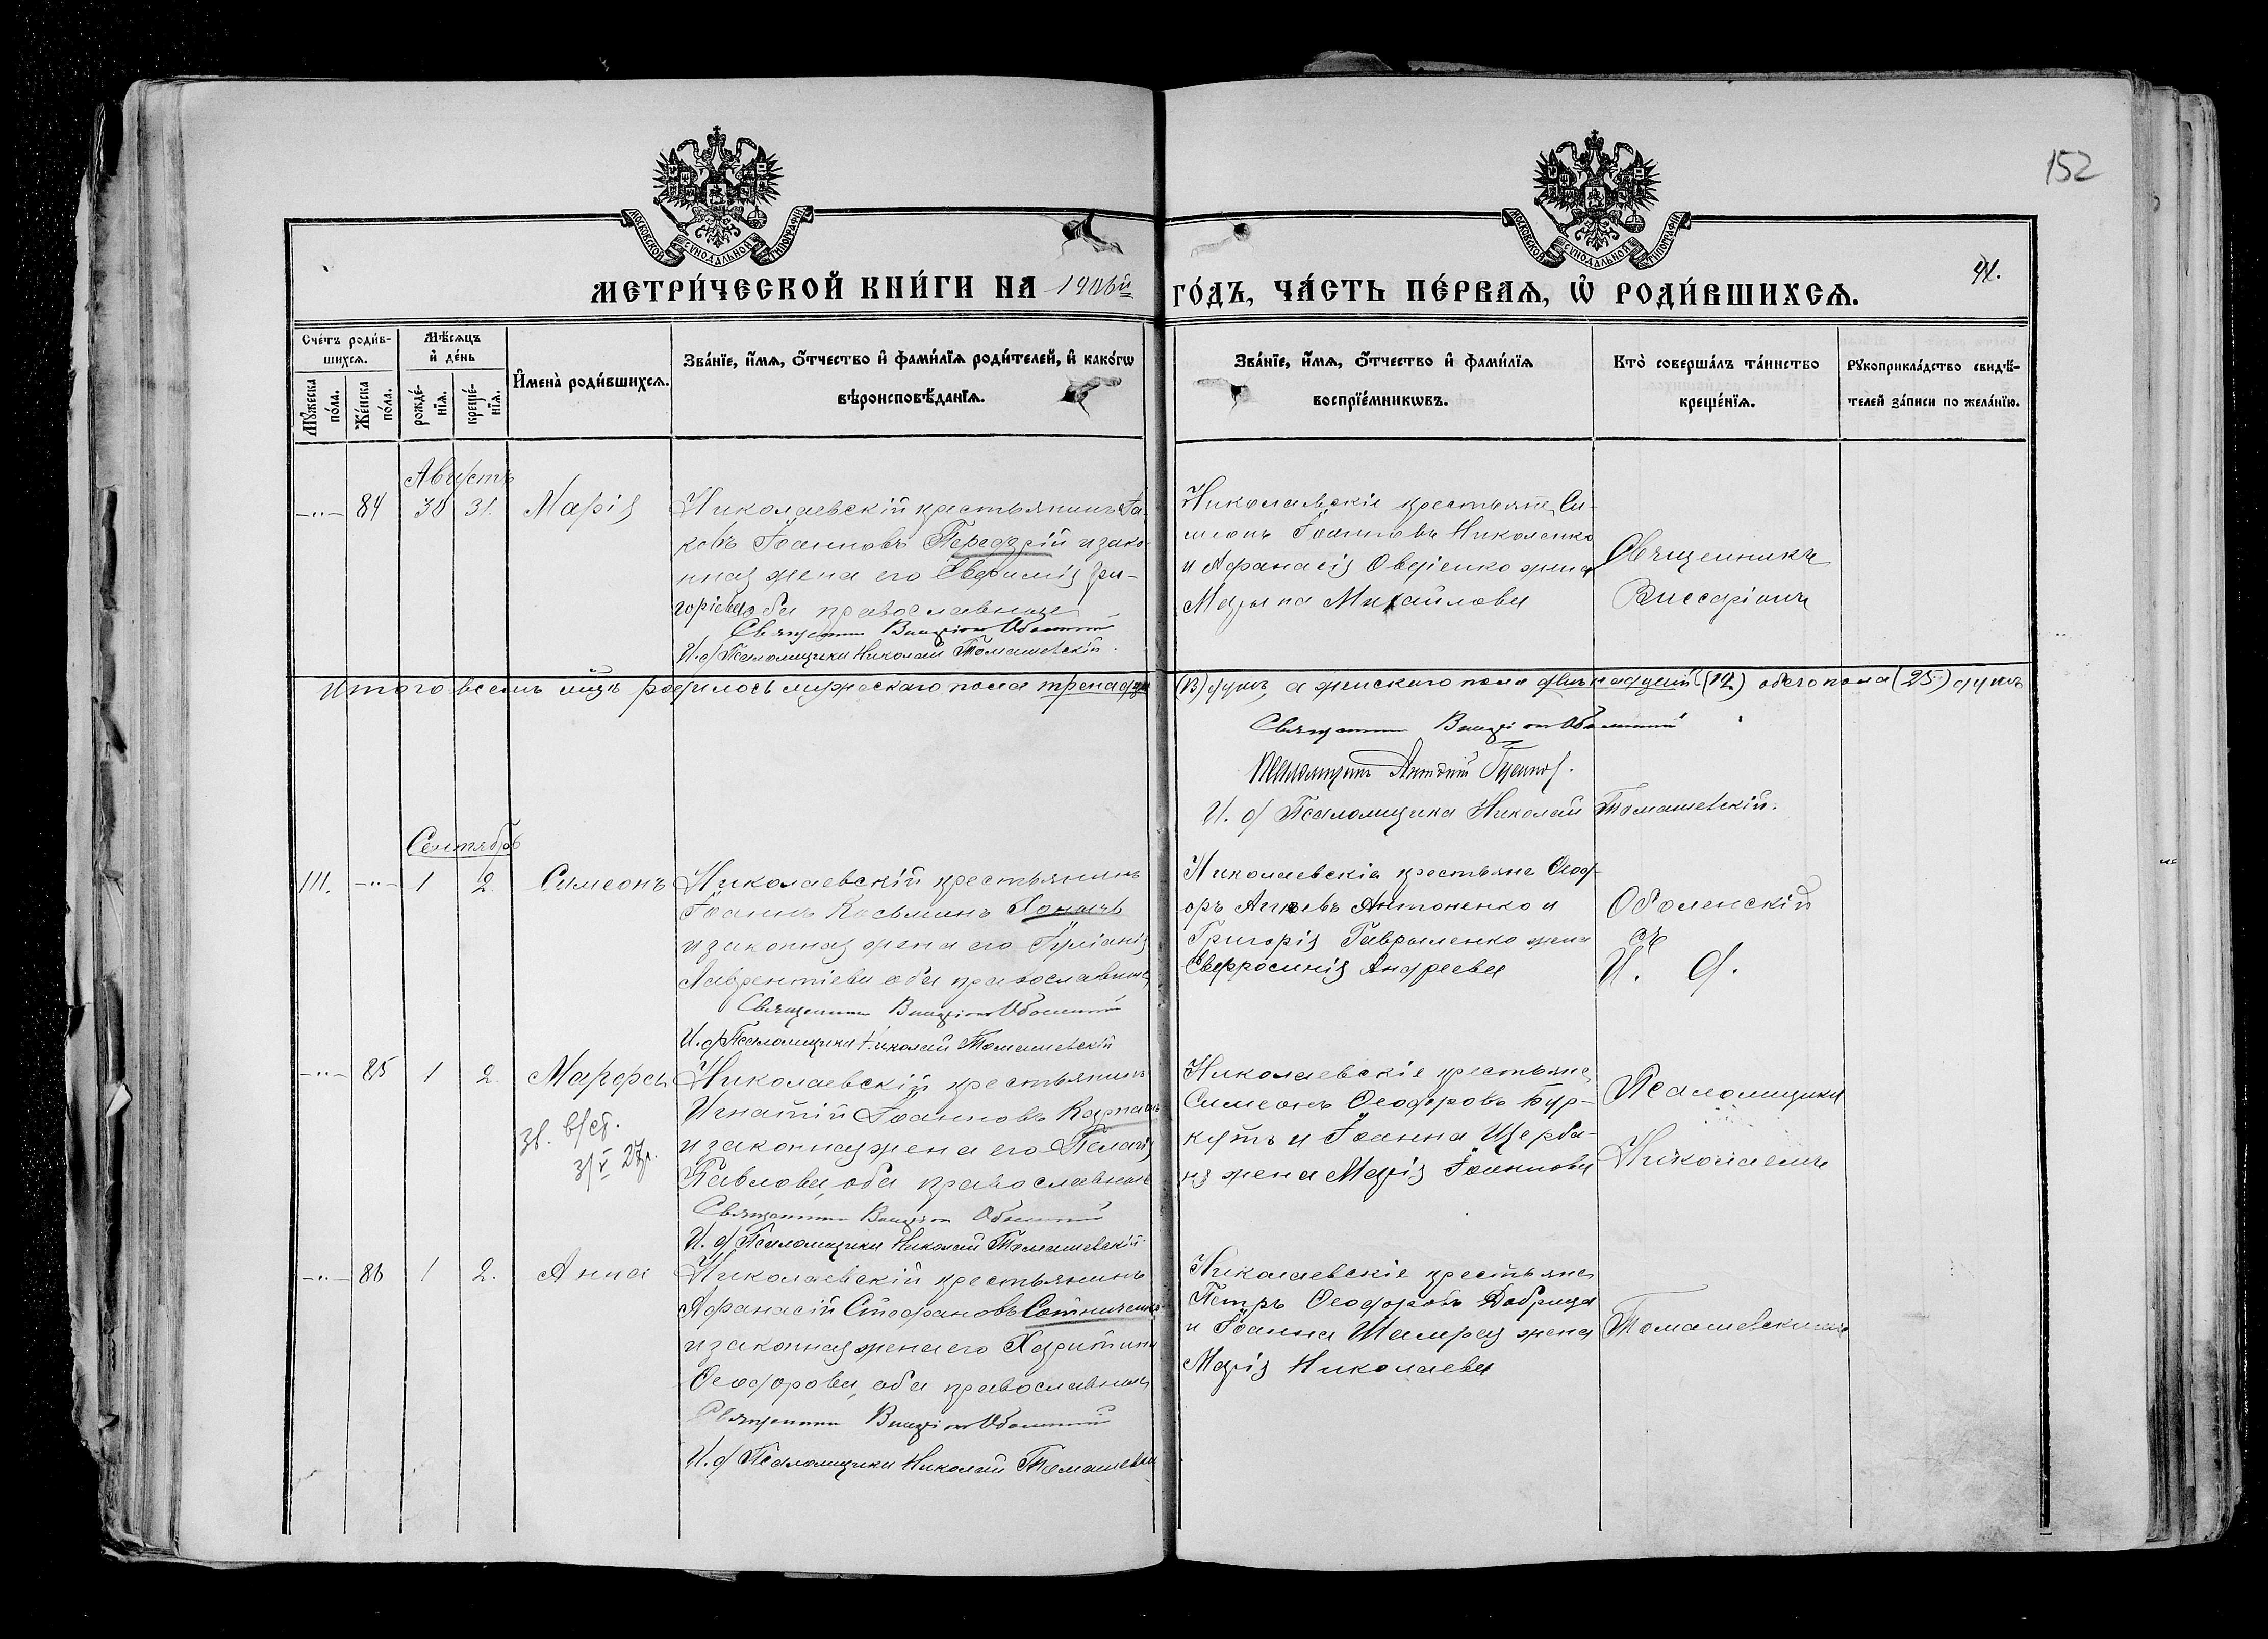 152
МОСКОВСКОЙ СѴНОДАЛЬНОЙ ТИПОГРАФІИ
МОСКОВСКОЙ СѴНОДАЛЬНОЙ ТИПОГРАФІИ
МЕТРИ́ЧЕСКОЙ КНИ́ГИ НА 1906й ГО́ДЪ, ЧА́СТЬ ПЕ́РВАЯ, Ѡ҆ РОДИ́ВШИХСЯ.
41.
Сче́тъ роди́в-
шихся.
Мѣ́сяцъ
и҆ де́нь
Мꙋ́жеска по́ла.
Же́нска по́ла.
рожде́-нїя.
креще́-нїя.
И҆мена̀ роди́вшихся.
Зва́нїе, и҆́мя, ѻ҆́тчество и҆ фами́лїя роди́телей, и҆ како́гѡ
вѣроисповѣ́данїя.
Зва́нїе, и҆́мя, ѻ҆́тчество и҆ фами́лїя
воспрїе́мникѡвъ.
Кто̀ соверша́лъ та́инство
креще́нїя.
Рꙋкоприкла́дство свидѣ́-
телей за́писи по жела́нїю.
Августъ
-"- 84 30 31. Марія
Николаевскій крестьянинъ Іа-
ковъ Іоанновъ Передрій и зако-
нная жена его Евфимія Гри-
горіева оба православные
Священникъ Виссаріонъ Оболенскій
И. д Псаломщика Николай Томашевскій.
Николаевскіе крестьяне Си-
меонъ Іоанновъ Николенко
и Афанасія Овдіенко жена
Марѳа Михайлова
Священникъ
Виссаріонъ
Итого всего лицъ родилось мужескаго пола тринадца (13) душъ, а женскаго пола двѣнадцать (12) обоего пола (25) душъ
Священникъ Виссаріонъ Оболенскій
Псаломщикъ
И. д Псаломщика Николай Томашевскій.
Сентябрь
111. -"- 1 2 Симеонъ
Николаевскій крестьянинъ
Іоаннъ Косьминъ Хомичъ
и законная жена его Іуліанія
Лаврентіева оба православные
Священникъ Виссаріонъ Оболенскій
И. д Псаломщика Николай Томашевскій
Николаевскіе крестьяне Ѳеод-
оръ Антоненко и
Григорія Гавриленко жена
Евфросинія Андреева
Оболенскій
съ
И. д.
-"- 85 1 2 Марфа
Николаевскій крестьянинъ
Игнатій Іоанновъ
и законная жена его Пелагія
Павлова, оба православные
Священникъ Виссаріонъ Оболенскій
И. д Псаломщика Николай Томашевскій
Николаевскіе крестьяне
Симеонъ Ѳеодоровъ Бур-
кутъ и Іоанна Щерба-
ня жена Марія Іоаннова
Псаломщика
Николаемъ
-"- 86 1 2. Анна
Николаевскій крестьянинъ
Афанасій Стефановъ Сотниченко
и законная жена его Харитина
Ѳеодорова, оба православные
Священникъ Виссаріонъ Оболенскій
И. д Псаломщика Николай Томашевскій
Николаевскіе крестьяне
Петръ Ѳеодоровъ Добрица
и Іоанна Шамрая жена
Марія Николаева
Томашевскимъ